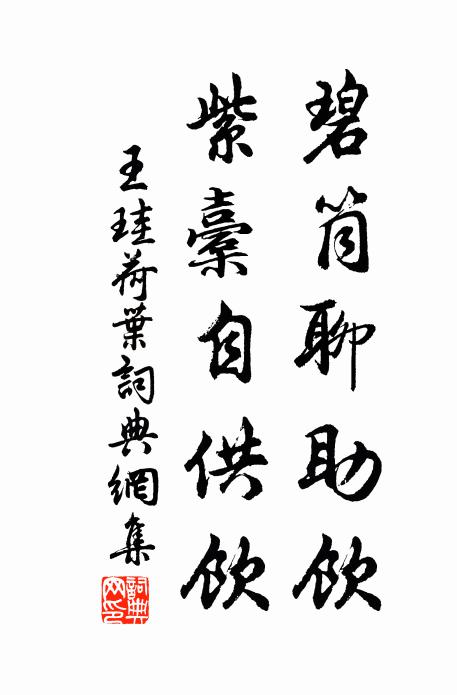 碧筒聊助飲
紫橐自供飲
王珪荷葉詞典網集
詞典網印